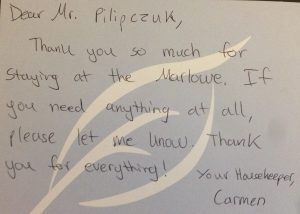 Dear Mr. Pilipczuk,
Thank you so much for
Staying at the Marlowe. If
you need anything at all,
please let me know. Thank
you for everything!
Your Housekeeper,
Carmen